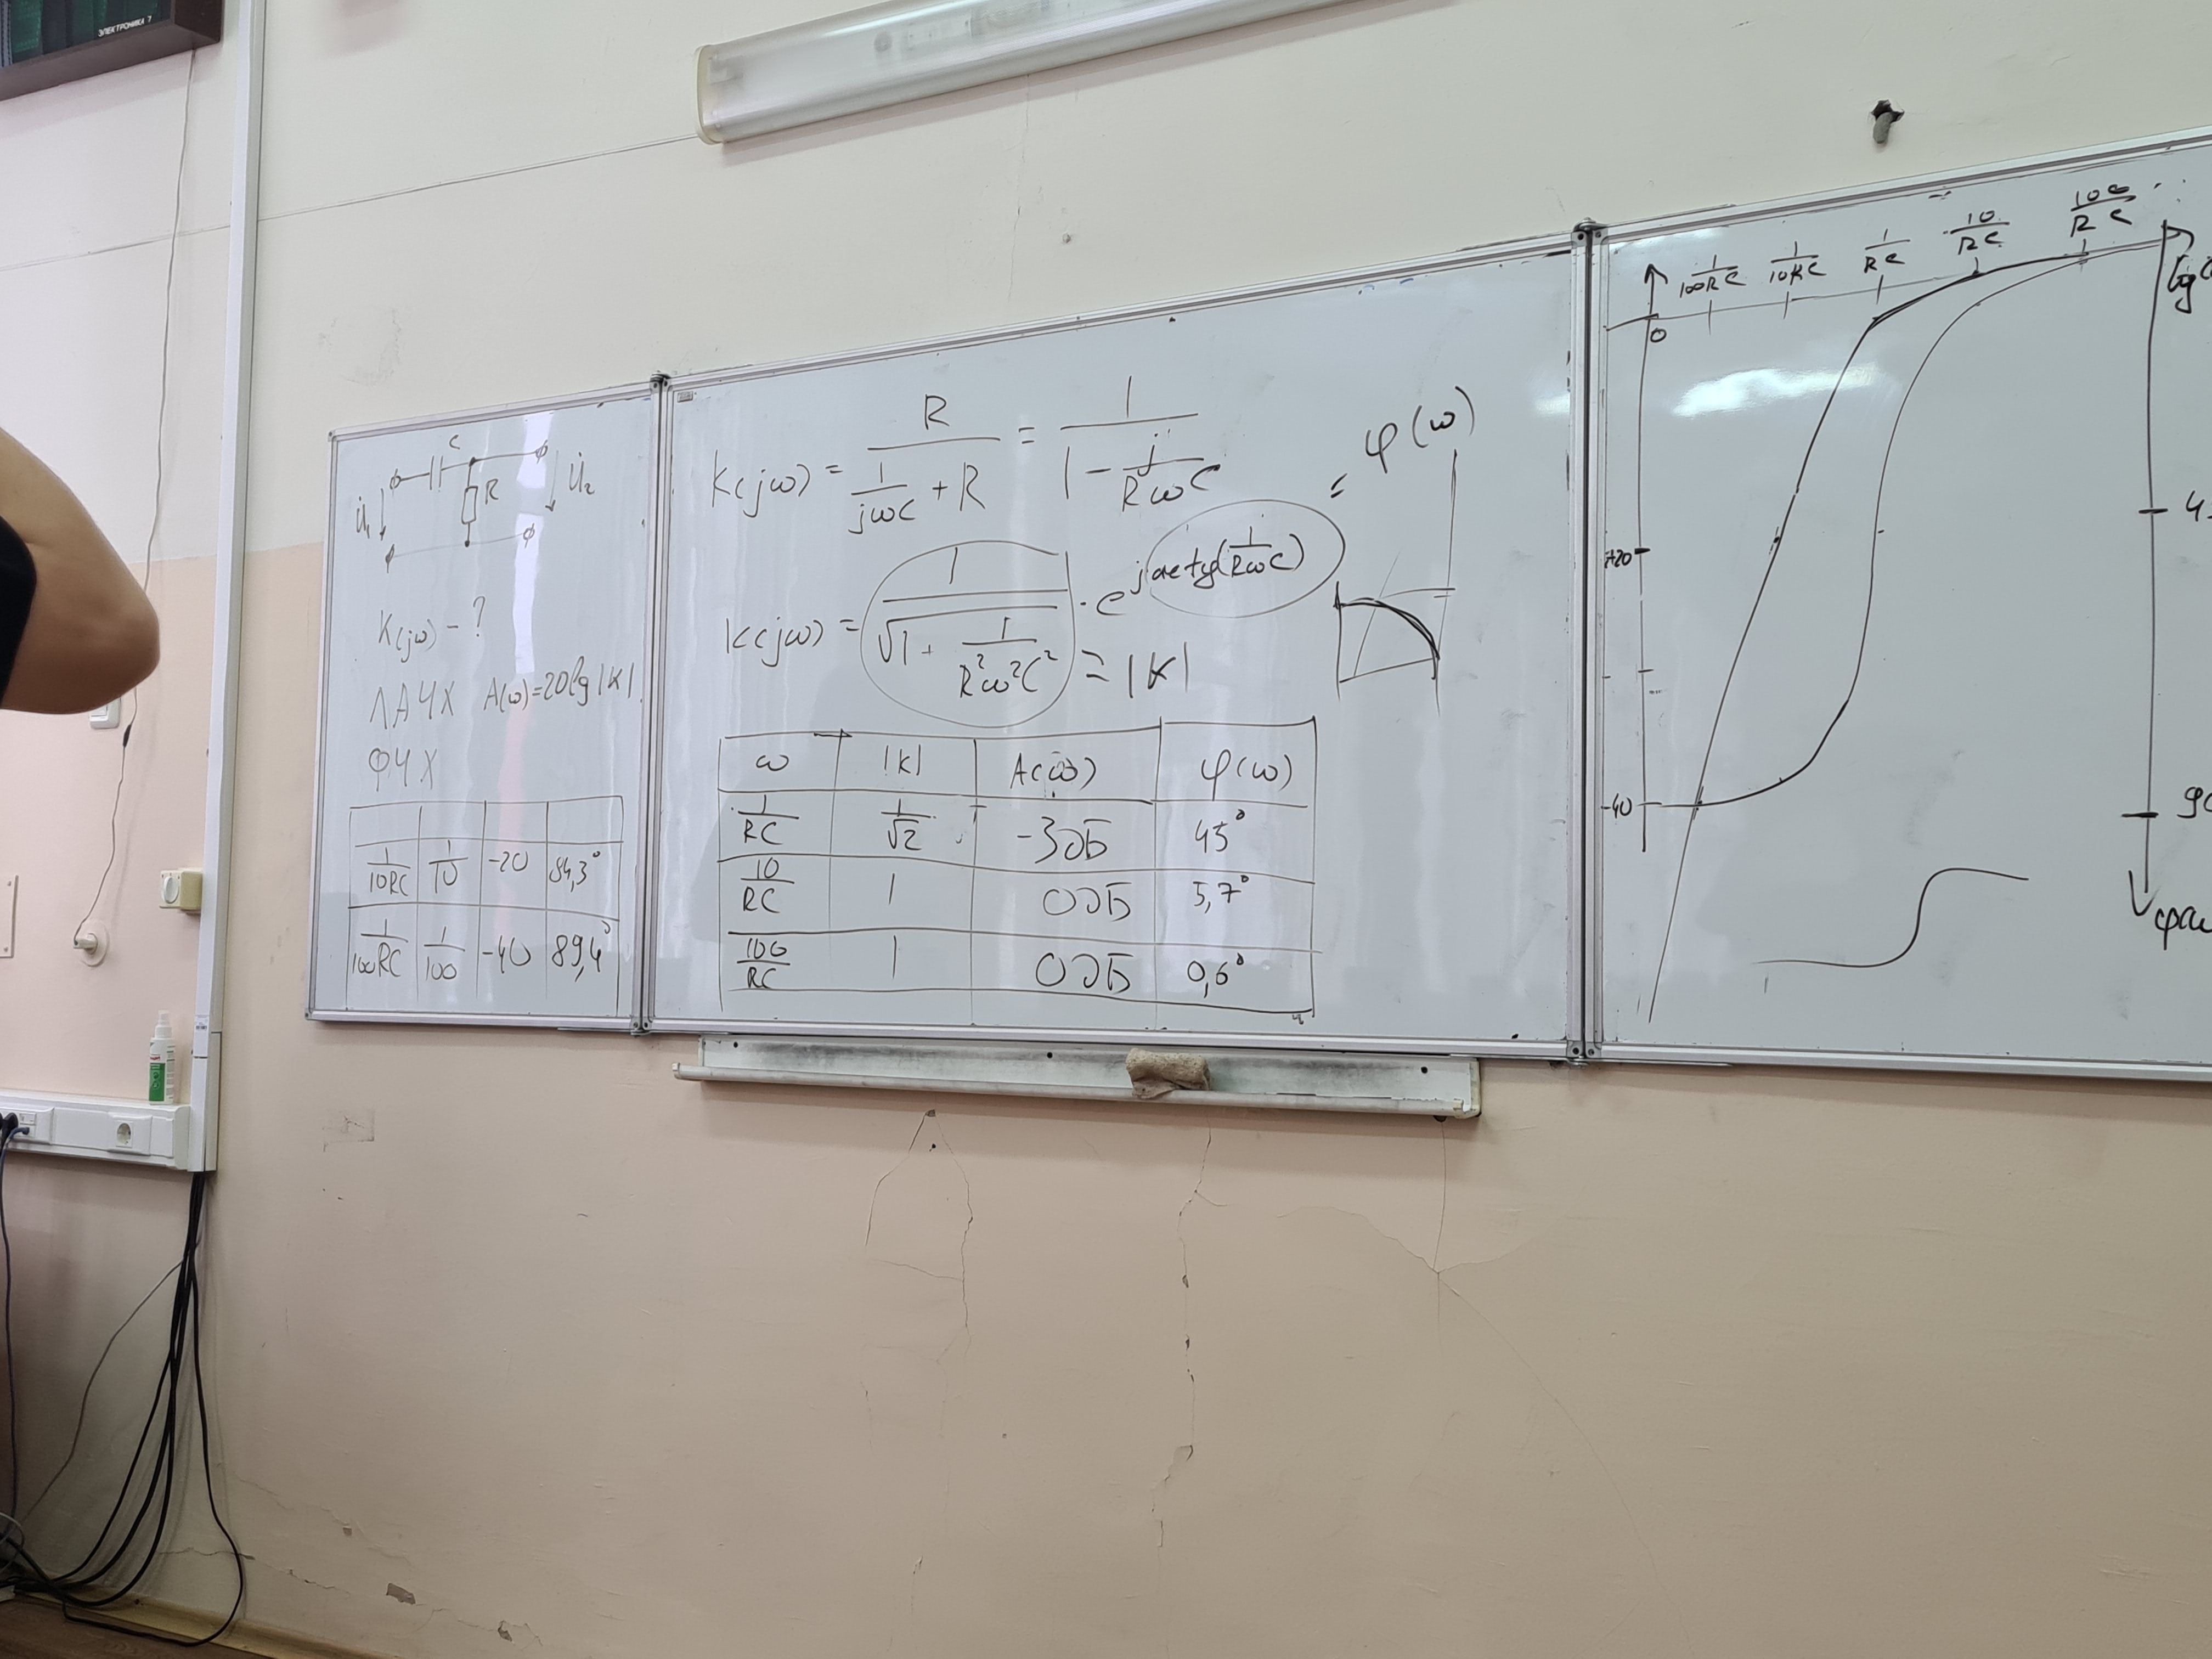 ЭЛЕКТРОНИКА 7
C
R
U̇₁
U̇₂
K(jω) - ?
ЛАЧХ A(ω)=20lg|K|
ФЧХ
1/10RC 1/10 -20 84,3°
1/100RC 1/100 -40 89,4°
K(jω) = R / (1/jωC + R) = 1 / (1 - j/RωC)
K(jω) = 1/√(1 + 1/R²ω²C²) · e^(j arctg(1/RωC))
= |K|
= φ(ω)
ω |K| A(ω) φ(ω)
1/RC 1/√2 -3дБ 45°
10/RC 1 0дБ 5,7°
100/RC 1 0дБ 0,6°
1/100RC 1/10RC 1/RC 10/RC 100/RC
0
-20
-40